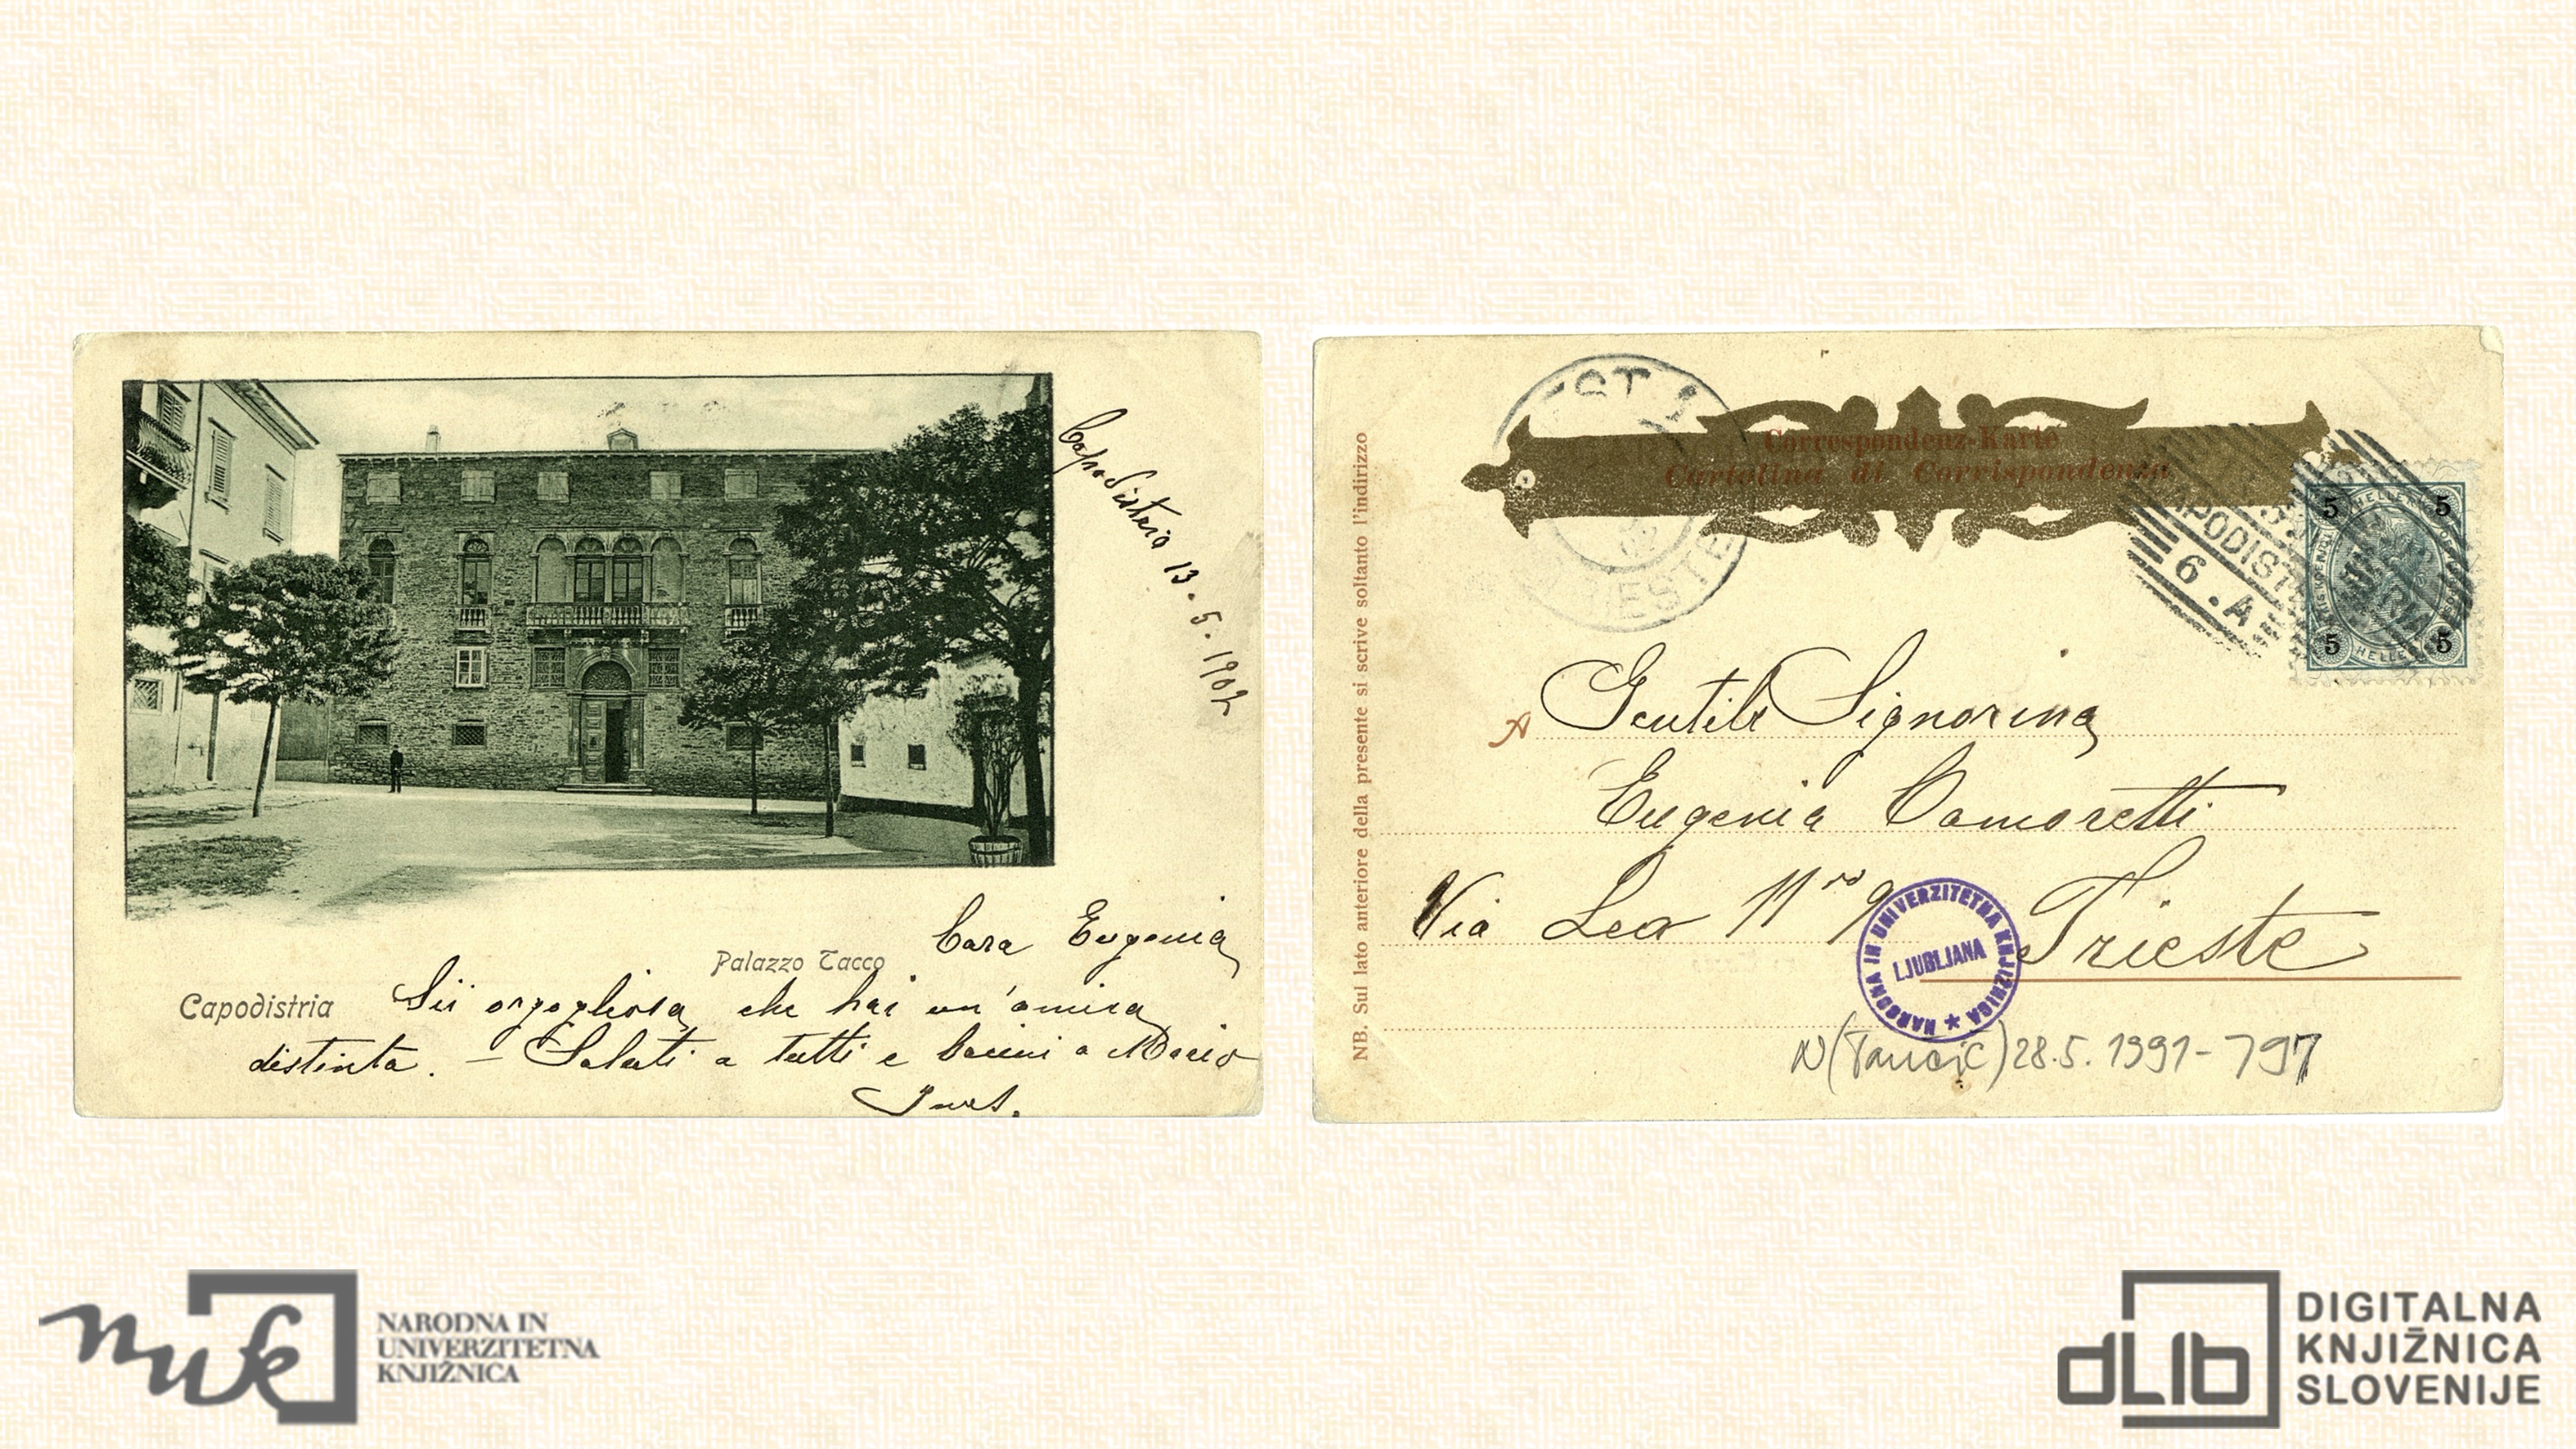 Capodistria 13.5.1902
Palazzo Tacco
Capodistria
Cara Eugenia
Sii orgogliosa che hai un'amica
distinta. – Saluti a tutti e bacini a Mario
NB. Sul lato anteriore della presente si scrive soltanto l'indirizzo
Correspondenz-Karte
Cartolina di Corrispondenza
TRIESTE
CAPODISTRIA
6.A
5 HELLER 5
5 HELLER 5
A Gentile Signorina
Eugenia Camoretti
Via Leo 9
Trieste
NARODNA IN UNIVERZITETNA KNJIŽNICA
LJUBLJANA
28.5.1991-797
nuk
NARODNA IN
UNIVERZITETNA
KNJIŽNICA
dLib
DIGITALNA
KNJIŽNICA
SLOVENIJE